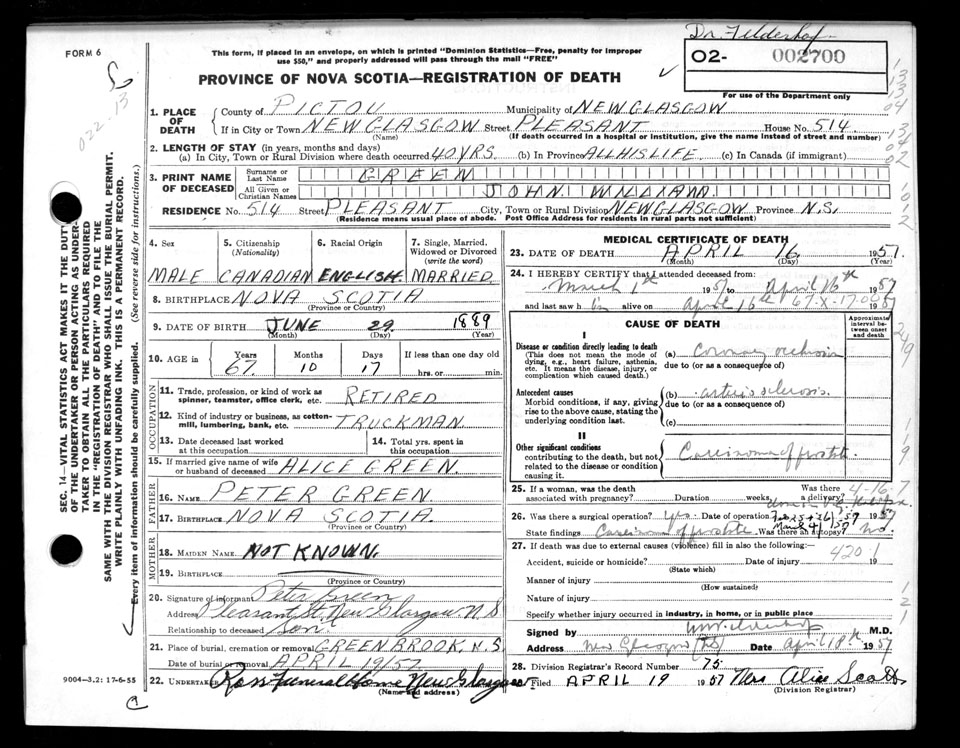 Dr. Felderhof
FORM 6
This form, if placed in an envelope, on which is printed "Dominion Statistics—Free, penalty for improper
use $50," and properly addressed will pass through the mail "FREE"
02- 002700
PROVINCE OF NOVA SCOTIA—REGISTRATION OF DEATH
For use of the Department only
022.13
1. PLACE OF DEATH
County of PICTOU Municipality of NEW GLASGOW
If in City or Town NEW GLASGOW Street PLEASANT House No. 514
(Name) (If death occurred in a hospital or institution, give the name instead of street and number)
2. LENGTH OF STAY (in years, months and days)
(a) In City, Town or Rural Division where death occurred 40 YRS. (b) In Province ALL HIS LIFE (c) In Canada (if immigrant)
3. PRINT NAME OF DECEASED
Surname or Last Name GREEN
All Given or Christian Names JOHN WILLIAM
RESIDENCE No. 514 Street PLEASANT City, Town or Rural Division NEW GLASGOW Province N.S.
(Residence means usual place of abode. Post Office Address for residents in rural parts not sufficient)
4. Sex 5. Citizenship (Nationality) 6. Racial Origin 7. Single, Married, Widowed or Divorced (write the word)
MALE CANADIAN ENGLISH. MARRIED.
8. BIRTHPLACE NOVA SCOTIA
(Province or Country)
9. DATE OF BIRTH JUNE 29 1889
(Month) (Day) (Year)
10. AGE in Years Months Days If less than one day old
67. 10 17 hrs. or min.
OCCUPATION
11. Trade, profession, or kind of work as spinner, teamster, office clerk, etc. RETIRED
12. Kind of industry or business, as cotton-mill, lumbering, bank, etc. TRUCKMAN.
13. Date deceased last worked at this occupation 14. Total yrs. spent in this occupation
15. If married give name of wife or husband of deceased ALICE GREEN.
FATHER
16. NAME PETER GREEN.
17. BIRTHPLACE NOVA SCOTIA.
(Province or Country)
MOTHER
18. MAIDEN NAME NOT KNOWN.
19. BIRTHPLACE
(Province or Country)
20. Signature of informant Peter Green
Address Pleasant St. New Glasgow. N.S
Relationship to deceased Son.
21. Place of burial, cremation or removal GREENBROOK, N.S.
Date of burial or removal APRIL 19/57.
22. UNDERTAKER Ross Funeral Home New Glasgow
(Name and address)
MEDICAL CERTIFICATE OF DEATH
23. DATE OF DEATH APRIL 16 1957
(Month) (Day) (Year)
24. I HEREBY CERTIFY that I attended deceased from:
March 1st 1957 to April 16th 1957
and last saw him alive on April 16th 1957
67-X-17-00
CAUSE OF DEATH
Approximate interval between onset and death
I
Disease or condition directly leading to death
(This does not mean the mode of dying, e.g., heart failure, asthenia, etc. It means the disease, injury, or complication which caused death.)
(a) Coronary occlusion
due to (or as a consequence of)
Antecedent causes
Morbid conditions, if any, giving rise to the above cause, stating the underlying condition last.
(b) arterio sclerosis.
due to (or as a consequence of)
(c)
II
Other significant conditions
contributing to the death, but not related to the disease or condition causing it.
Carcinoma of prostate
25. If a woman, was the death associated with pregnancy? Duration weeks Was there a delivery?
4-16-7
26. Was there a surgical operation? yes Date of operation Feb 25 + 26/57 March 4/57 1957
State findings Carcinoma of prostate Was there an autopsy? no.
27. If death was due to external causes (violence) fill in also the following:—
Accident, suicide or homicide? Date of injury 19
420.1
(State which)
Manner of injury
(How sustained)
Nature of injury
Specify whether injury occurred in industry, in home, or in public place
Signed by M.D.
Address New Glasgow (NS) Date April 18th 1957
28. Division Registrar's Record Number 75.
Filed APRIL 19 1957 Mrs Alice Scott
(Division Registrar)
SEC. 14—VITAL STATISTICS ACT MAKES IT THE DUTY
OF THE UNDERTAKER OR PERSON ACTING AS UNDERTAKER TO OBTAIN ALL THE PARTICULARS REQUIRED
IN THE "REGISTRATION OF DEATH" AND TO FILE THE
SAME WITH THE DIVISION REGISTRAR WHO SHALL ISSUE THE BURIAL PERMIT.
WRITE PLAINLY WITH UNFADING INK. THIS IS A PERMANENT RECORD.
Every item of information should be carefully supplied. (See reverse side for instructions.)
9004-3.2: 17-6-55